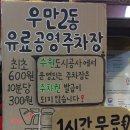 우만2동
유료공영주차장
최초
600원
10분당
300원
수원도시공사에서
운영되는 주차장은
주차권 발급이
되지 않습니다!
1시간무료